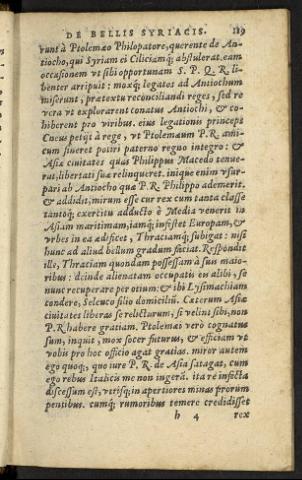 DE BELLIS SYRIACIS. 119
runt à Ptolemæo Philopatore, querente de An-
tiocho, qui Syriam ei Ciliciamq; abstulerat. eam
occasionem vt sibi opportunam S. P. Q. R. li-
benter arripuit: moxq; legatos ad Antiochum
miserunt, prætextu reconciliandi reges, sed re
vera vt explorarent conatus Antiochi, & co-
hiberent pro viribus. eius legationis princeps
Cneus petijt à rege, vt Ptolemæum P.R. ami-
cum sineret potiri paterno regno integro: &
Asiæ ciuitates quas Philippus Macedo tenue-
rat, libertati suæ relinqueret. inique enim vsur-
pari ab Antiocho quæ P. R. Philippo ademerit.
& addidit, mirum esse cur rex cum tanta classe
tantoq; exercitu adducto è Media venerit in
Asiam maritimam, iamq; infestet Europam, &
vrbes in ea ædificet, Thraciamq; subigat: nisi
hunc ad aliud bellum gradum faciat. Respondit
ille, Thraciam quondam possessam à suis maio-
ribus: deinde alienatam occupatis eis alibi, se
nunc recuperare per otium: & ibi Lysimachiam
condere, Seleuco filio domicilium. Cæterum Asiæ
ciuitates liberas se relicturum, si velint sibi, non
P.R. habere gratiam. Ptolemæi verò cognatus
sum, inquit, mox socer futurus, & efficiam vt
vobis pro hoc officio agat gratias. miror autem
ego quoq;, quo iure P. R. de Asia satagat, cum
ego rebus Italicis me non ingerã. ita re infecta
discessum est, vtrisq; in apertiores minas prorum
pentibus. cumq; rumoribus temere credidisset
h 4 rex